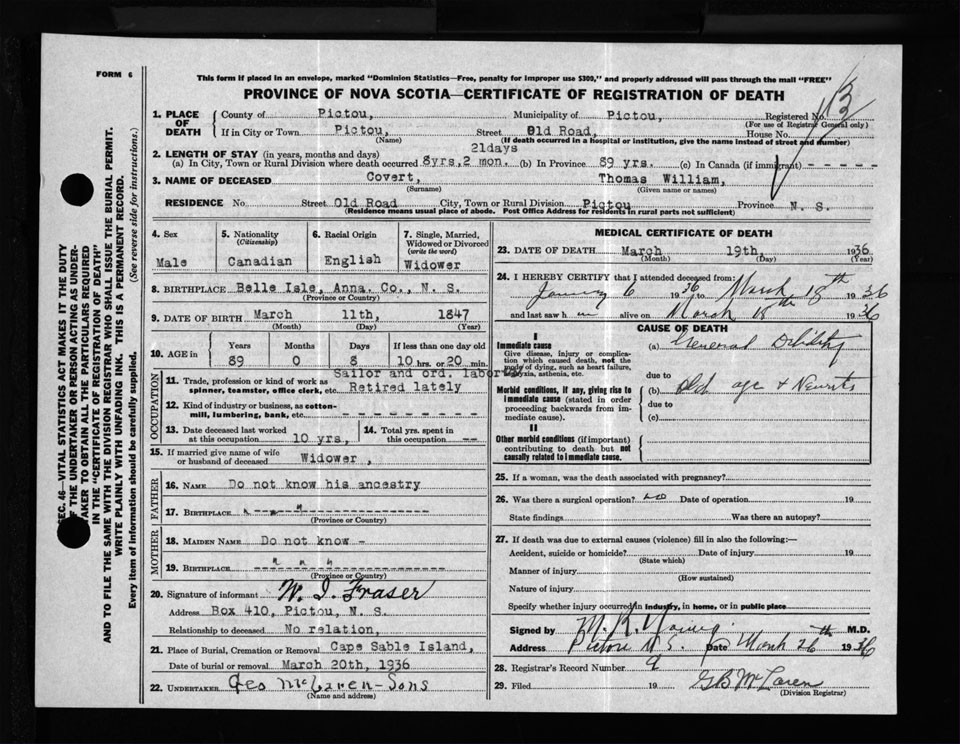 FORM 6
This form if placed in an envelope, marked "Dominion Statistics—Free, penalty for improper use $300," and properly addressed will pass through the mail "FREE"
PROVINCE OF NOVA SCOTIA—CERTIFICATE OF REGISTRATION OF DEATH
1. PLACE OF DEATH
County of Pictou, Municipality of Pictou, Registered No.
(For use of Registrar General only)
If in City or Town Pictou, Street Old Road, House No.
(Name) (If death occurred in a hospital or institution, give the name instead of street and number)
2. LENGTH OF STAY (in years, months and days) 21days
(a) In City, Town or Rural Division where death occurred 8yrs,2 mon. (b) In Province 89 yrs. (c) In Canada (if immigrant) - - - - - -
3. NAME OF DECEASED Covert, Thomas William,
(Surname) (Given name or names)
RESIDENCE No Street Old Road City, Town or Rural Division Pictou Province N. S.
(Residence means usual place of abode. Post Office Address for residents in rural parts not sufficient)
4. Sex
Male
5. Nationality
(Citizenship)
Canadian
6. Racial Origin
English
7. Single, Married, Widowed or Divorced
(write the word)
Widower
8. BIRTHPLACE Belle Isle, Anna. Co., N. S.
(Province or Country)
9. DATE OF BIRTH March 11th, 1847
(Month) (Day) (Year)
10. AGE in
Years Months Days If less than one day old
89 0 8 10 hrs. or 20 min.
OCCUPATION
Sailor and ord. laborer
11. Trade, profession or kind of work as spinner, teamster, office clerk, etc. Retired lately
12. Kind of industry or business, as cotton-mill, lumbering, bank, etc.
13. Date deceased last worked at this occupation 10 yrs,
14. Total yrs. spent in this occupation --
15. If married give name of wife or husband of deceased Widower ,
FATHER
16. NAME Do not know his ancestry
17. BIRTHPLACE
(Province or Country)
MOTHER
18. MAIDEN NAME Do not know -
19. BIRTHPLACE
(Province or Country)
20. Signature of informant W. I. Fraser
Address Box 410, Pictou, N. S.
Relationship to deceased No relation,
21. Place of Burial, Cremation or Removal Cape Sable Island,
Date of burial or removal March 20th, 1936
22. UNDERTAKER Geo McLaren-Sons
(Name and address)
MEDICAL CERTIFICATE OF DEATH
23. DATE OF DEATH March 19th, 1936
(Month) (Day) (Year)
24. I HEREBY CERTIFY that I attended deceased from:
January 6 1936 to March 18th 1936
and last saw him alive on March 18th 1936
CAUSE OF DEATH
I
Immediate cause
Give disease, injury or complication which caused death, not the mode of dying, such as heart failure, asphyxia, asthenia, etc.
(a) General Debility
due to
Morbid conditions, if any, giving rise to immediate cause (stated in order proceeding backwards from immediate cause).
(b) Old age + Neuritis
due to
(c)
II
Other morbid conditions (if important) contributing to death but not causally related to immediate cause.
25. If a woman, was the death associated with pregnancy?
26. Was there a surgical operation? no Date of operation 19
State findings Was there an autopsy?
27. If death was due to external causes (violence) fill in also the following:—
Accident, suicide or homicide? Date of injury 19
(State which)
Manner of injury
(How sustained)
Nature of injury
Specify whether injury occurred in industry, in home, or in public place
Signed by M. R. Young M.D.
Address Pictou N.S. Date March 26th 1936
28. Registrar's Record Number 9
29. Filed 19 GB McLaren
(Division Registrar)
SEC. 46—VITAL STATISTICS ACT MAKES IT THE DUTY
OF THE UNDERTAKER OR PERSON ACTING AS UNDER-
TAKER TO OBTAIN ALL THE PARTICULARS REQUIRED
IN THE "CERTIFICATE OF REGISTRATION OF DEATH"
AND TO FILE THE SAME WITH THE DIVISION REGISTRAR WHO SHALL ISSUE THE BURIAL PERMIT.
WRITE PLAINLY WITH UNFADING INK. THIS IS A PERMANENT RECORD.
Every item of information should be carefully supplied. (See reverse side for instructions.)